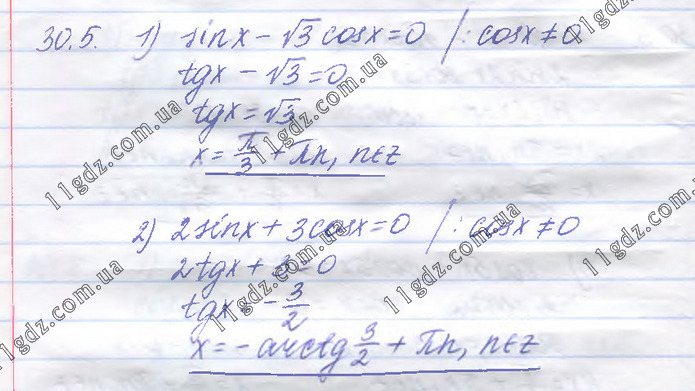 30.5. 1) sinx - √3 cosx = 0 /: cosx ≠ 0
tgx - √3 = 0
tgx = √3
x = π/3 + πn, n∈z
2) 2sinx + 3cosx = 0 /: cosx ≠ 0
2tgx + 3 = 0
tgx = - 3/2
x = - arctg 3/2 + πn, n∈z
11gdz.com.ua
11gdz.com.ua
11gdz.com.ua
11gdz.com.ua
11gdz.com.ua
11gdz.com.ua